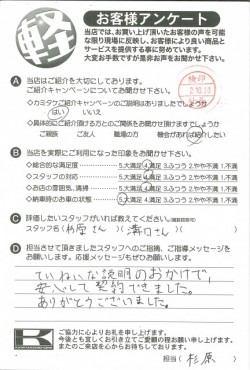 軽
お客様アンケート
当店では、お買い上げ頂いたお客様の声を可能
な限り現場に反映し、お客様により良い商品と
サービスを提供する事に努めています。
大変お手数ですが是非お声をお聞かせ下さい。
検印
2.10.13
A 当店はご紹介を大切にしております。
ご紹介キャンペーンについてお聞かせ下さい。
◇カミタケご紹介キャンペーンのご説明はありましたでしょうか
はい いいえ
◇具体的にご紹介頂ける方とのご関係をお聞かせ頂けますでしょうか
ご親戚 ご友人 職場の方 機会があれば紹介したい
B 当店を実際ご利用になった印象をお聞かせ下さい。
◇総合的な満足度 5.大満足 4.満足 3.ふつう 2.やや不満 1.不満
◇スタッフの対応 5.大満足 4.満足 3.ふつう 2.やや不満 1.不満
◇お店の雰囲気、清掃 5.大満足 4.満足 3.ふつう 2.やや不満 1.不満
◇納車時のお車の状態 5.大満足 4.満足 3.ふつう 2.やや不満 1.不満
C 評価したいスタッフがいれば教えてください。
スタッフ名( 杉原さん )( 溝口さん )
D 担当させて頂きましたスタッフへのご指摘、ご指導メッセージを
お願いします。応援メッセージもぜひお願いします。
ていねいな説明のおかげで、
安心して契約できました。
ありがとうございました。
K
ご協力に心よりお礼を申し上げます。
今後とも宜しくお引き立てご愛顧の程お願い申し上げます。
またのご来店を心からお待ちしております。
担当( 杉原 )